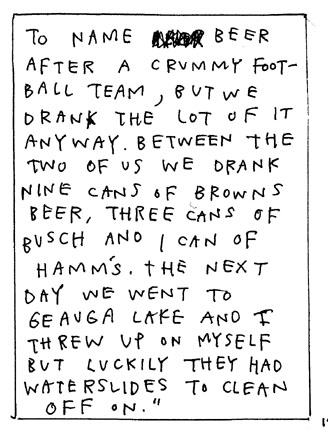 TO NAME BEER
AFTER A CRUMMY FOOT-
BALL TEAM, BUT WE
DRANK THE LOT OF IT
ANYWAY. BETWEEN THE
TWO OF US WE DRANK
NINE CANS OF BROWNS
BEER, THREE CANS OF
BUSCH AND 1 CAN OF
HAMM'S. THE NEXT
DAY WE WENT TO
GEAUGA LAKE AND I
THREW UP ON MYSELF
BUT LUCKILY THEY HAD
WATERSLIDES TO CLEAN
OFF ON."